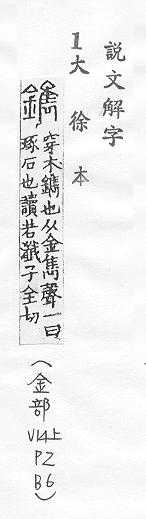 説文解字
1大徐本
鐫 穿木鐫也从金雋聲一曰
琢石也讀若瀸子全切
(金部
V14上
P2
B6)